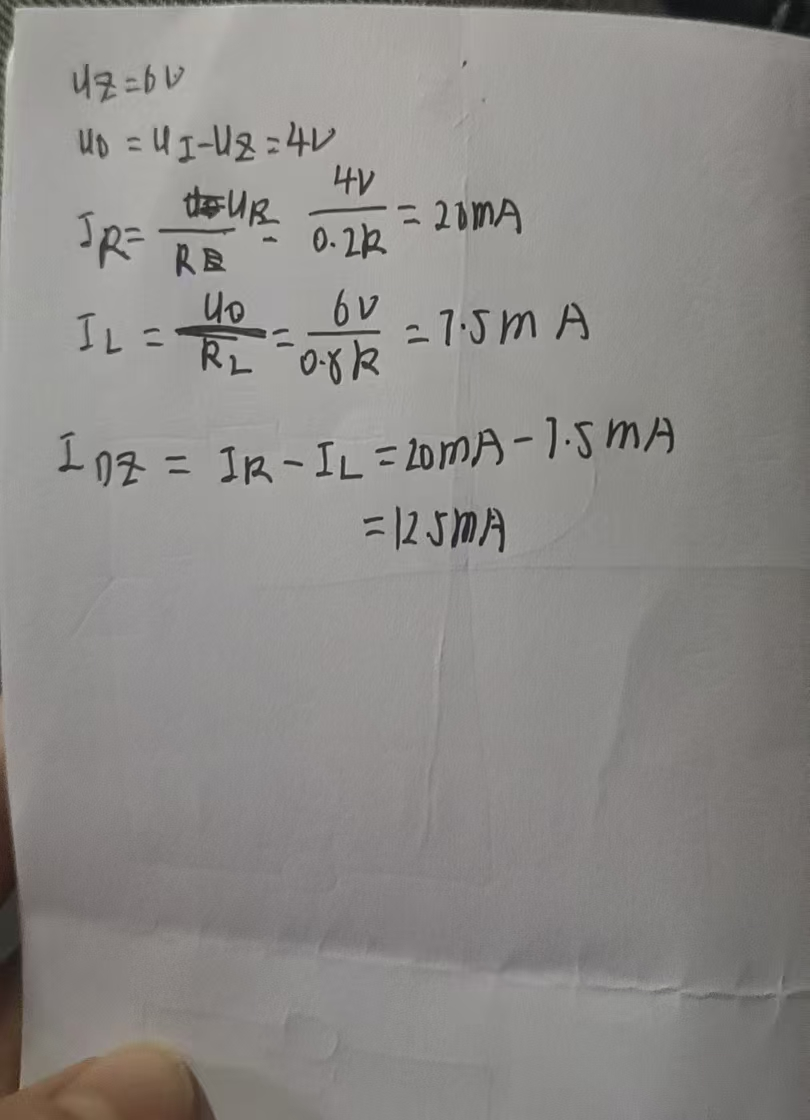 UZ=6V
UO=UI-UZ=4V
IR=UR/R=4V/0.2k=20mA
IL=UO/RL=6V/0.8k=7.5mA
IDZ=IR-IL=20mA-7.5mA
=12.5mA